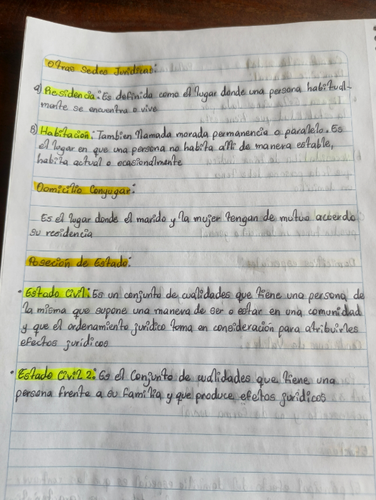 Otras Sedes Jurídicas:
a) Residencia: Es definida como el lugar donde una persona habitual-
mente se encuentra o vive
B) Habitacion: Tambien llamada morada permanencia o paralelo. Es
el lugar en que una persona no habita alli de manera estable,
habita actual o ocasionalmente
Domicilio Conyugar:
Es el lugar donde el marido y la mujer tengan de mutuo acuerdo
su residencia
Poseción de Estado:
• Estado Civil: Es un conjunto de cualidades que tiene una persona de
la misma que supone una manera de ser o estar en una comunidad
y que el ordenamiento juridico toma en consideración para atribuirles
efectos juridicos
• Estado Civil 2: Es el Conjunto de cualidades que tiene una
persona frente a su familia y que produce efectos juridicos